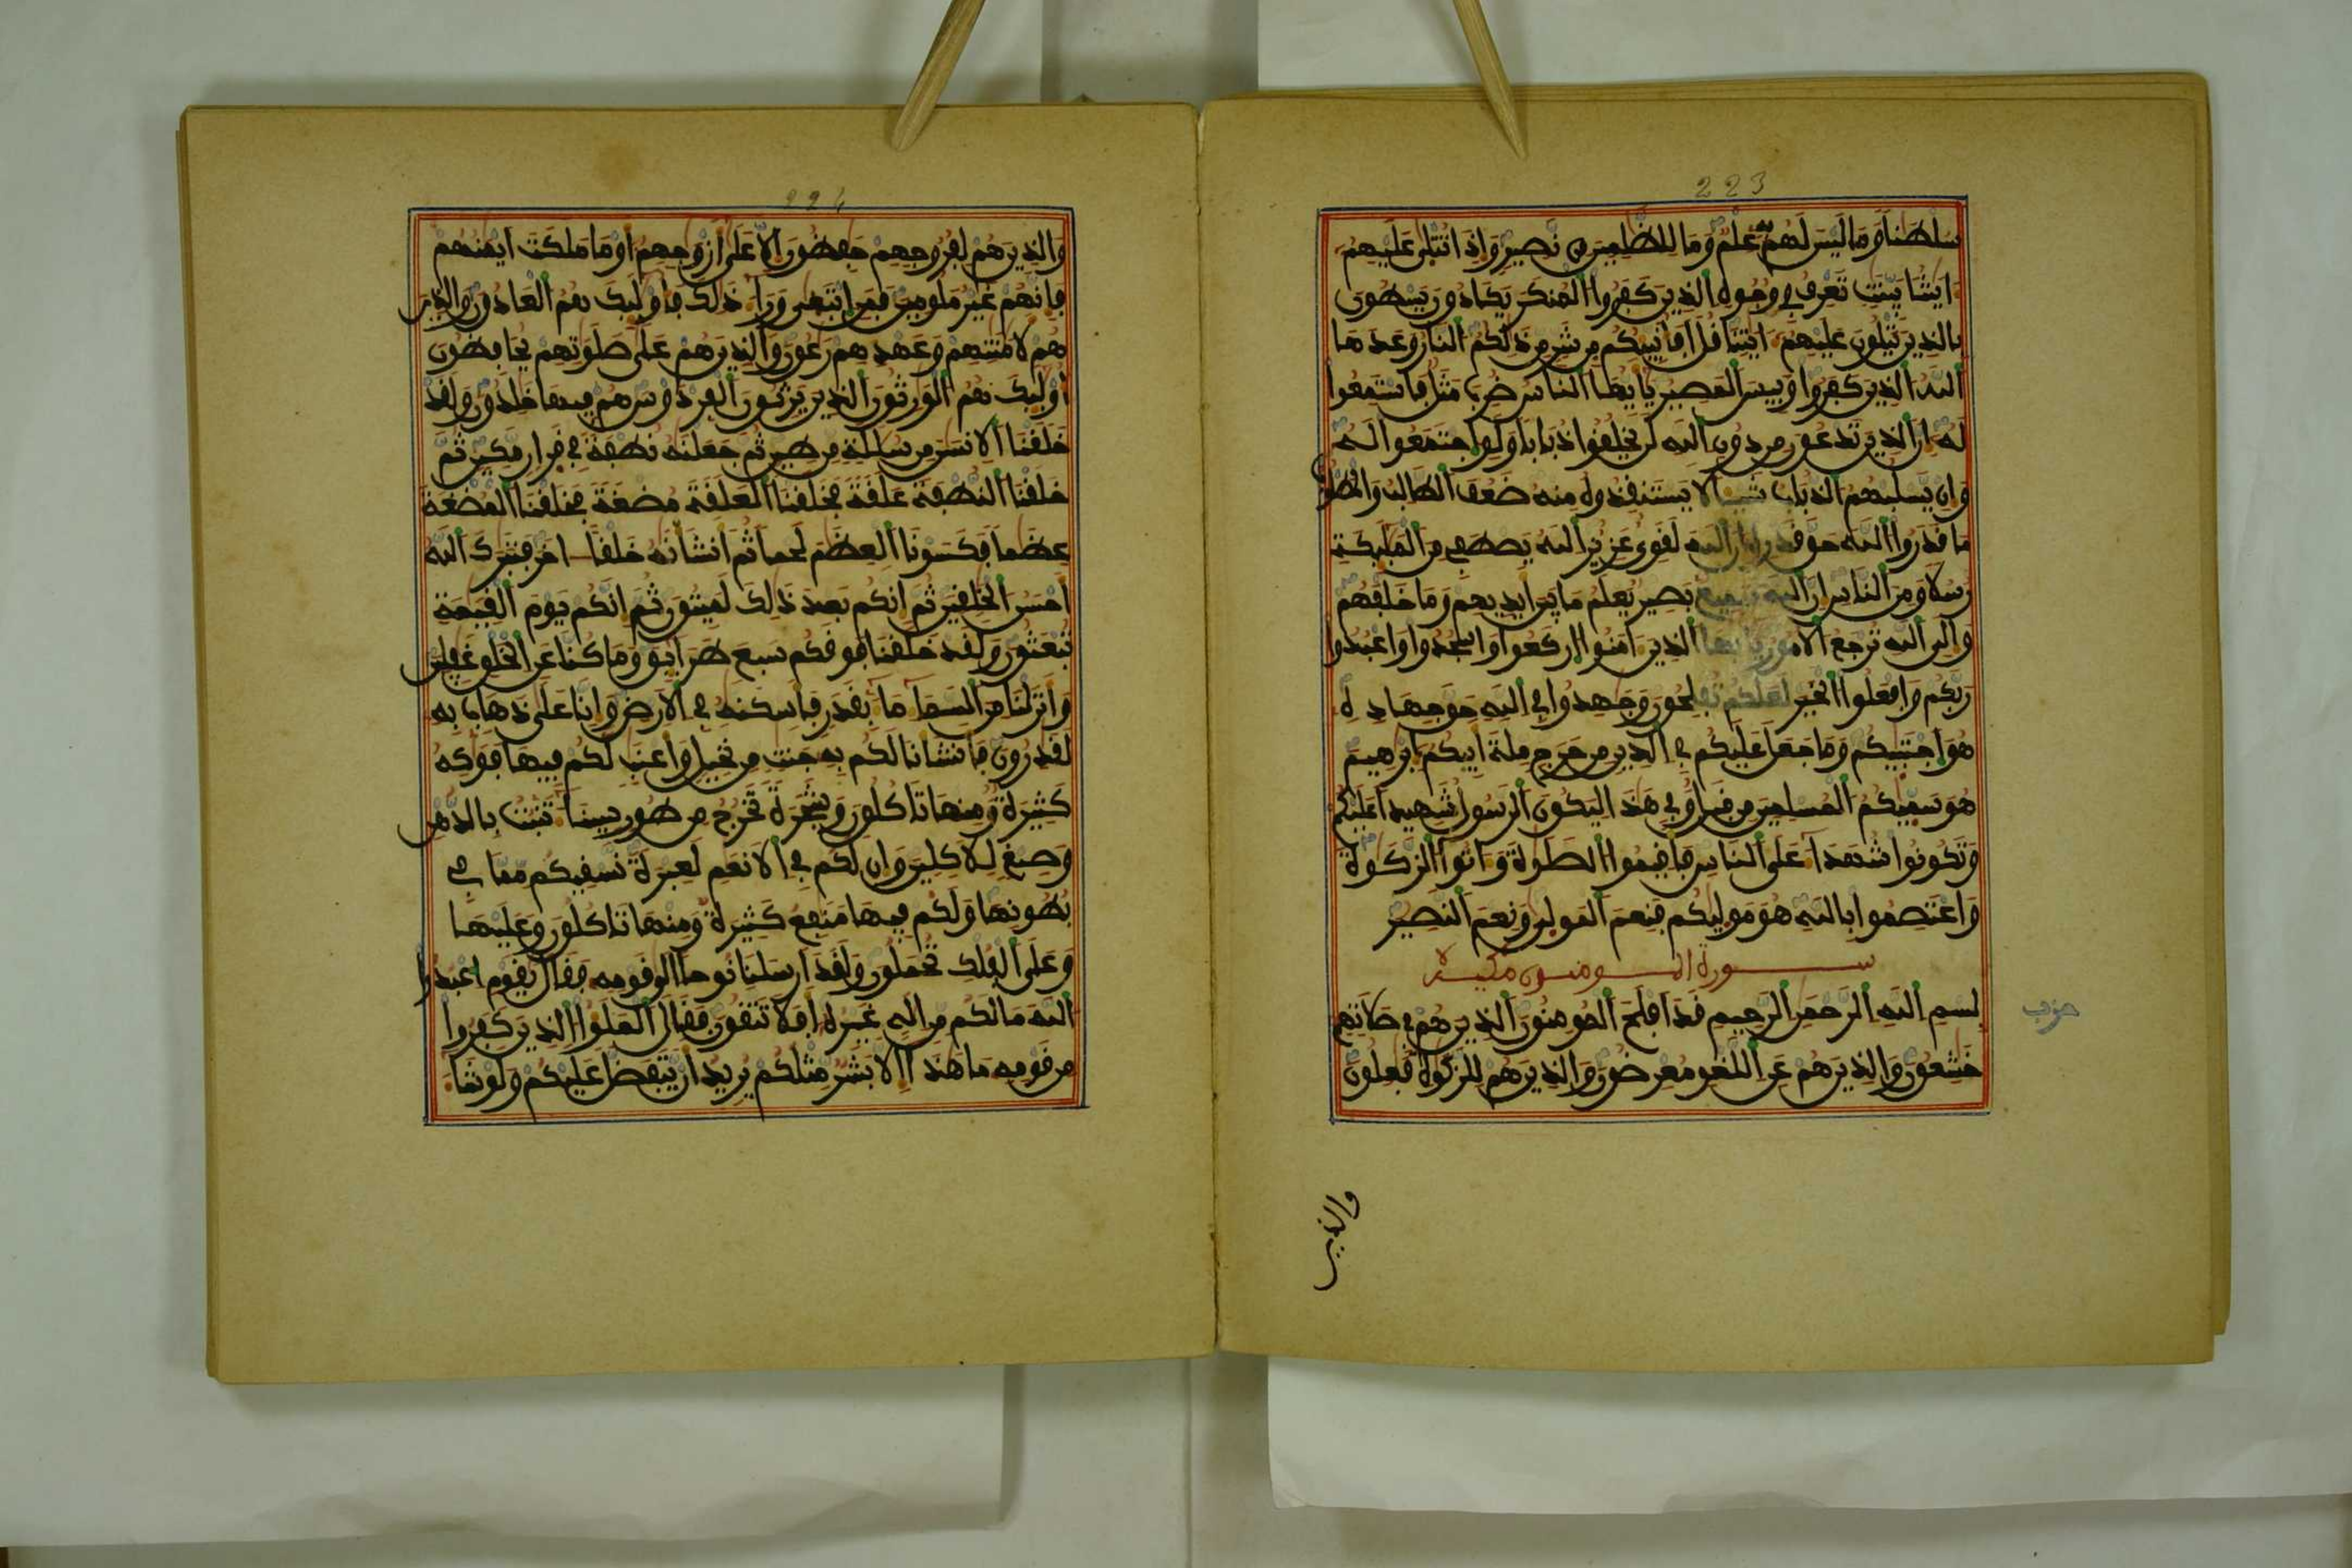 223
سلطنا وما ليس لهم به علم وما للظلمين من نصير واذا تتلى عليهم
ايتنا بينت تعرف في وجوه الذين كفروا المنكر يكادون يسطون
بالذين يتلون عليهم ايتنا قل افانبيكم بشر من ذلكم النار وعدها
الله الذين كفروا وبيس المصير يايها الناس ضرب مثل فاستمعوا
له ان الذين تدعون من دون الله لن يخلقوا ذبابا ولو اجتمعوا له
وان يسلبهم الذباب شيئا لا يستنقذوه منه ضعف الطالب والمطلوب
ما قدروا الله حق قدره ان الله لقوي عزيز الله يصطفي من المليكة
رسلا ومن الناس ان الله سميع بصير يعلم ما بين ايديهم وما خلفهم
والى الله ترجع الامور يايها الذين امنوا اركعوا واسجدوا واعبدوا
ربكم وافعلوا الخير لعلكم تفلحون وجهدوا في الله حق جهاده
هو اجتبيكم وما جعل عليكم في الدين من حرج ملة ابيكم ابرهيم
هو سميكم المسلمين من قبل وفي هذا ليكون الرسول شهيدا عليكم
وتكونوا شهدا على الناس فاقيموا الصلوة واتوا الزكوة
واعتصموا بالله هو موليكم فنعم المولى ونعم النصير
سورة المومنون مكية
بسم الله الرحمن الرحيم قد افلح المومنون الذين هم في صلاتهم
حزب
خشعون والذين هم عن اللغو معرضون والذين هم للزكوة فعلون
والذين
224
والذين هم لفروجهم حفظون الا على ازوجهم او ما ملكت ايمنهم
فانهم غير ملومين فمن ابتغى ورا ذلك فاوليك هم العادون والذين
هم لامنتهم وعهدهم رعون والذين هم على صلوتهم يحافظون
اوليك هم الورثون الذين يرثون الفردوس هم فيها خلدون ولقد
خلقنا الانسن من سللة من طين ثم جعلنه نطفة في قرار مكين ثم
خلقنا النطفة علقة فخلقنا العلقة مضغة فخلقنا المضغة
عظما فكسونا العظم لحما ثم انشانه خلقا اخر فتبرك الله
احسن الخلقين ثم انكم بعد ذلك لميتون ثم انكم يوم القيمة
تبعثون ولقد خلقنا فوقكم سبع طرايق وما كنا عن الخلق غفلين
وانزلنا من السما ما بقدر فاسكنه في الارض وانا على ذهاب به
لقدرون فانشانا لكم به جنت من نخيل واعنب لكم فيها فوكه
كثيرة ومنها تاكلون وشجرة تخرج من طور سينا تنبت بالدهن
وصبغ للاكلين وان لكم في الانعم لعبرة نسقيكم مما في
بطونها ولكم فيها منفع كثيرة ومنها تاكلون وعليها
وعلى الفلك تحملون ولقد ارسلنا نوحا الى قومه فقال يقوم اعبدوا
الله ما لكم من اله غيره افلا تتقون فقال الملوا الذين كفروا
من قومه ما هذا الا بشر مثلكم يريد ان يتفضل عليكم ولو شا